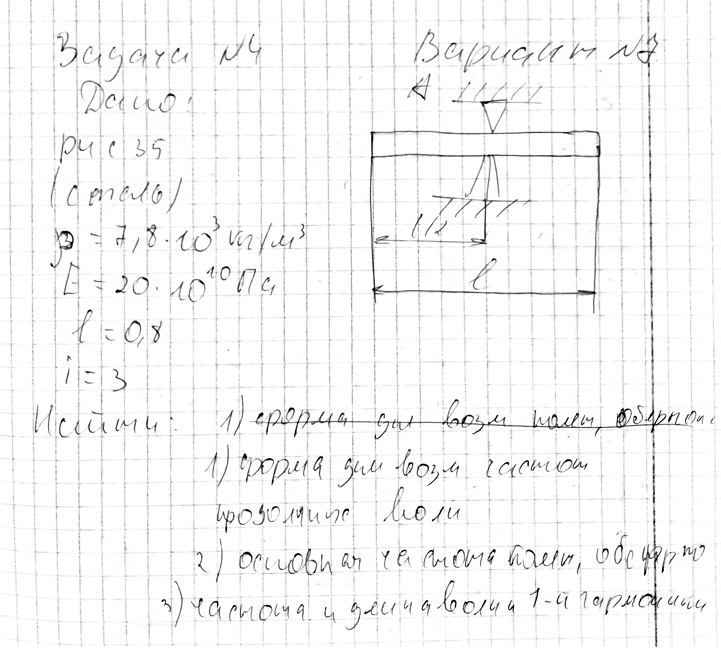 Задача №4
Вариант №7
Дано:
A
рис 35
(сталь)
ρ = 7,8·10³ кг/м³
E = 20·10¹⁰ Па
l = 0,8
i = 3
l/2
l
Найти: 1) форма для возм
1) форма для возм частот
продольных волн
2) основная частота
3) частота и длина волны i-й гармоники